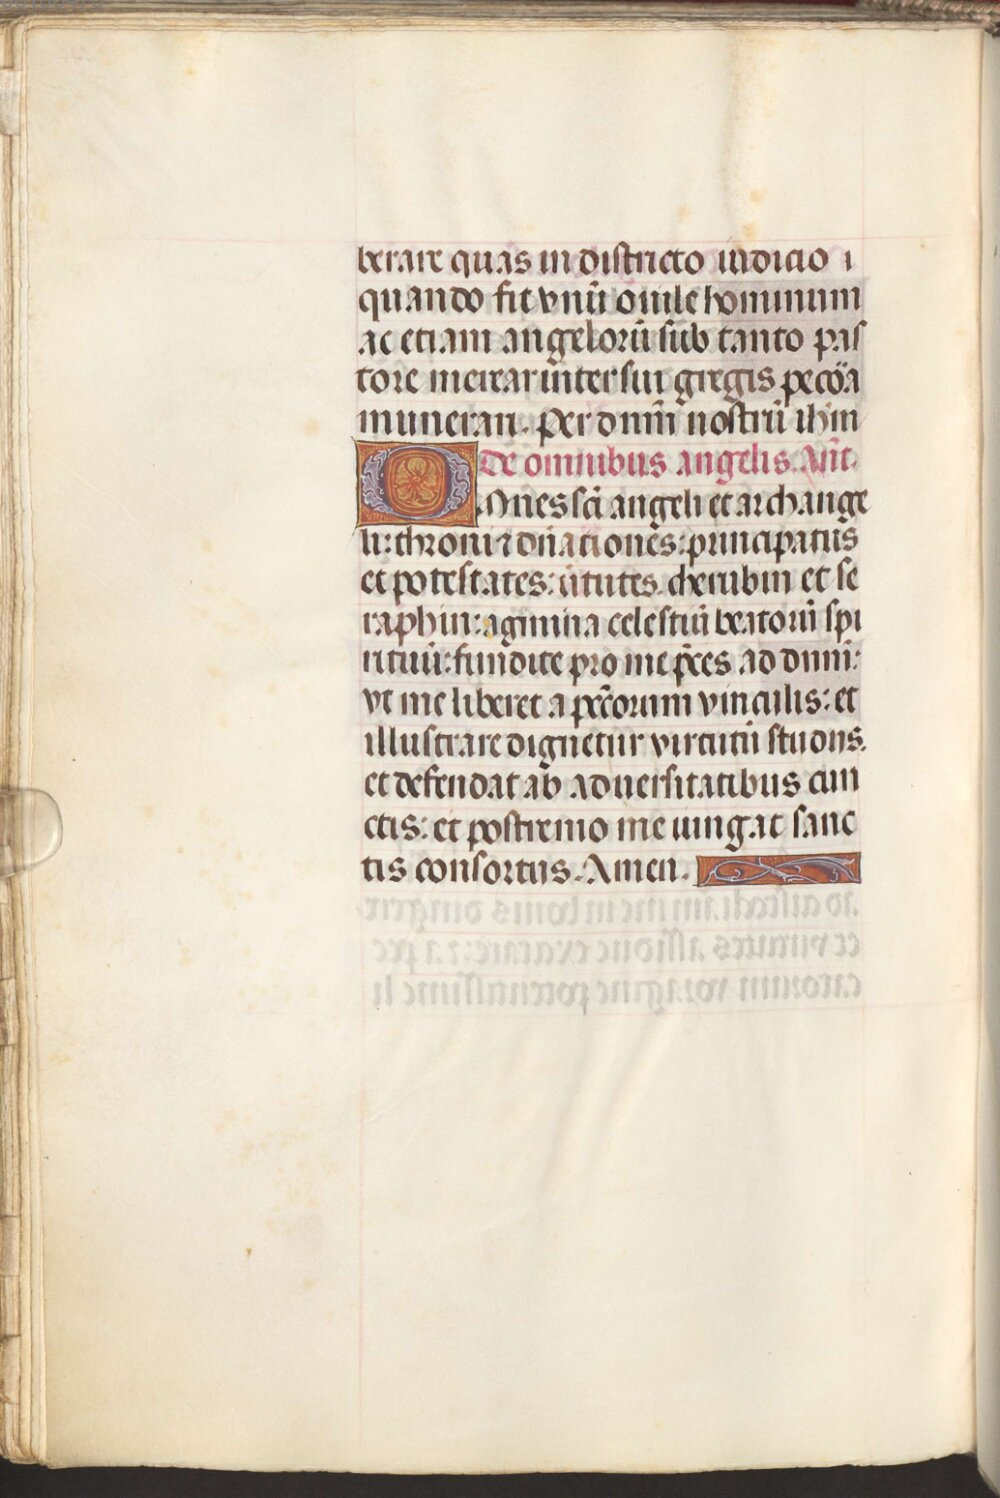 berare quas in districto iudicio i
quando fit vnū ouile hominum
ac etiam angelorū sub tanto pas
tore merear inter sui gregis pecōa
munerari. Per dnm̄ nostrū ihm
De omnibus angelis. Añt.
Omēs sc̄i angeli et archange
li: throni ⁊ dn̄ationes: principatus
et potestates: ūtutes. cherubin et se
raphin: agmina celestiū beatorū spi
rituū: fundite pro me p̄ces ad dnm̄:
vt me liberet a pctōrum vinculis: et
illustrare dignetur virtutū studiis.
et defendat ab aduersitatibus cun
ctis: et postremo me iungat sanc
tis consortiis. Amen.